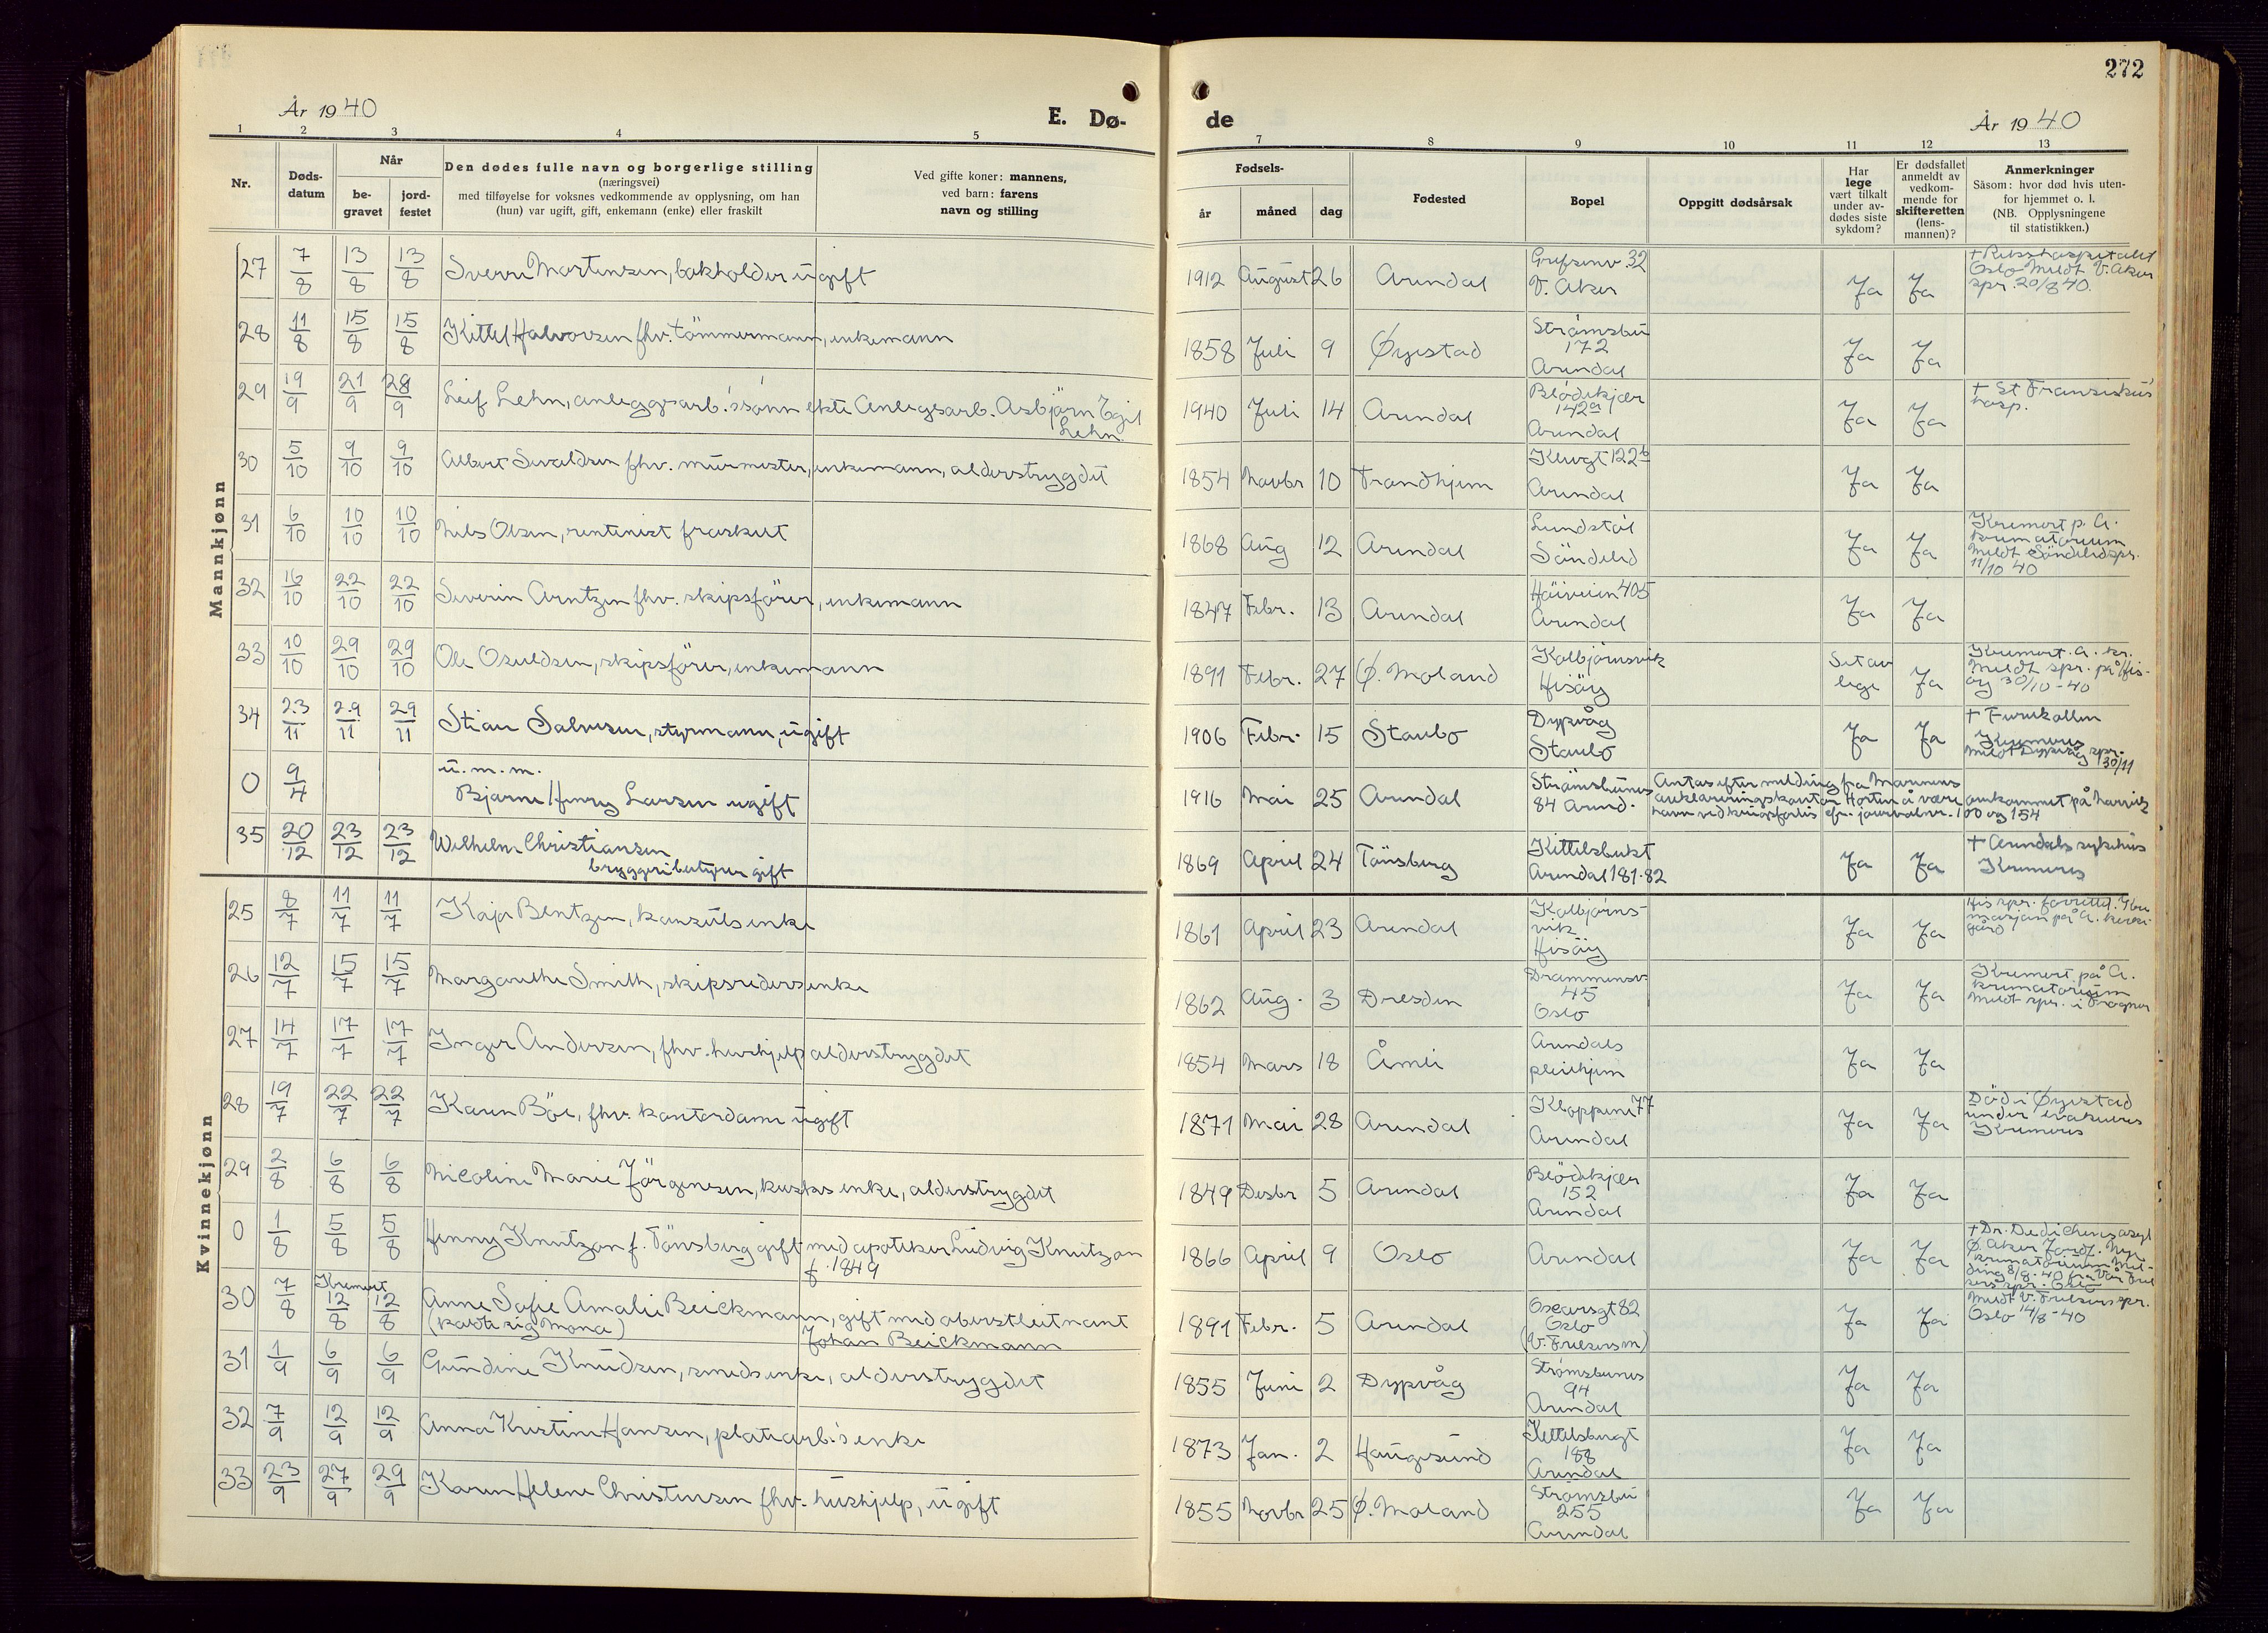 272
År 1940
E. Dø-
de
År 1940
1 2 3 4 5
7 8 9 10 11 12 13
Nr.
Døds-
datum
Når
be-
gravet
jord-
festet
Den dødes fulle navn og borgerlige stilling
(næringsvei)
med tilføyelse for voksnes vedkommende av opplysning, om han
(hun) var ugift, gift, enkemann (enke) eller fraskilt
Ved gifte koner: mannens,
ved barn: farens
navn og stilling
Fødsels-
år
måned
dag
Fødested
Bopel
Oppgitt dødsårsak
Har
lege
vært tilkalt
under av-
dødes siste
sykdom?
Er dødsfallet
anmeldt av
vedkom-
mende for
skifteretten
(lens-
mannen)?
Anmerkninger
Såsom: hvor død hvis uten-
for hjemmet o. l.
(NB. Opplysningene
til statistikken.)
Mannkjønn
27 7/8 13/8 13/8 Sverre Martinsen, bokholder ugift 1912 August 26 Arendal Grefsenv. 32 V. Aker Ja Ja + Rikshospitalet Oslo Meldt V. Aker spr. 20/8 40.
28 11/8 15/8 15/8 Kittel Halvorsen fhv. tömmermann, enkemann 1858 Juli 9 Øyestad Strömsbu 172 Arendal Ja Ja
29 19/9 21/9 28/9 Leif Lehn, anleggsarb.'s sönn ekte Anlegsarb. Asbjörn Egil Lehn. 1940 Juli 14 Arendal Blödekjær 142a Arendal Ja Ja + St Fransiskus' hosp.
30 5/10 9/10 9/10 Albert Sivaldsen fhv. murmester, enkemann, alderstrygdet 1854 Novbr 10 Trondhjem Klevgt 122b Arendal Ja Ja
31 6/10 10/10 10/10 Nils Olsen, rentenist fraskilt 1868 Aug 12 Arendal Lundstöl Söndeled Ja Ja Kremert p. A. krematorium Meldt Söndeled spr. 11/10 40
32 16/10 22/10 22/10 Severin Arntzen fhv. skipsförer, enkemann 1847 Febr. 13 Arendal Höiveien 405 Arendal Ja Ja
33 10/10 29/10 29/10 Ole Osuldsen, skipsförer, enkemann 1891 Febr. 27 Ø. Moland Kolbjörnsvik Hisöy Set av lege Ja Kremert. A. kr. Meldt spr. på Hisöy 30/10-40
34 23/11 29/11 29/11 Stian Salvesen, styrmann, ugift 1906 Febr. 15 Staubö Dypvåg Staubö Ja Ja + Furukollen Kremeres Meldt Dypvåg spr. 30/11
0 9/4 u.m.m. Bjarne Henry Larsen ugift 1916 Mai 25 Arendal Strömsbunes 84 Arend. Antas efter melding fra Marinens avklareringskontor Horten å være omkommet på Narvik havn ved krigsforlis cfr. journalnr. 100 og 154
35 20/12 23/12 23/12 Wilhelm Christiansen bryggeribestyrer gift 1869 April 24 Tönsberg Kittelsbukt Arendal 181-82 Ja Ja + Arendals sykehus Kremeres
Kvinnekjønn
25 8/7 11/7 11/7 Kaja Bentzen, konsuls enke 1861 April 23 Arendal Kolbjörnsvik Hisöy Ja Ja His spr. forrettet. Kremasjon på A. kirkegård
26 12/7 15/7 15/7 Margarethe Smith, skipsreders enke 1862 Aug. 3 Dresden Drammensv. 45 Oslo Ja Ja Kremert på A. krematorium Meldt spr. i Frogner
27 14/7 17/7 17/7 Inger Andersen, fhv. hushjelp alderstrygdet 1854 Mars 18 Åmli Arendals pleiehjem Ja Ja
28 19/7 22/7 22/7 Karen Böe, fhv. kontordame ugift 1871 Mai 28 Arendal Kloppene 77 Arendal Ja Ja Död i Øyestad under evakueres Kremeres
29 2/8 6/8 6/8 Nicoline Marie Jörgensen, kusks enke, alderstrygdet 1849 Desbr 5 Arendal Blödekjær 152 Arendal Ja Ja
0 1/8 5/8 5/8 Henny Knutzon f. Tönsberg gift med apoteker Ludvig Knutzon f. 1849 1866 April 9 Oslo Arendal Ja Ja + Dr. Dedichens asyl Ø. Aker
30 7/8 Kremert 12/8 12/8 Anne Sofie Amalie Beickmann, gift med oberstleitnant Johan Beickmann (kaldte sig Mona) 1891 Febr. 5 Arendal Oscarsgt 82 Oslo (V. Frelsers m) Ja Ja Meldt V. Frelsers spr. Oslo 14/8-40
31 1/9 6/9 6/9 Gundine Knudsen, smeds enke, alderstrygdet 1855 Juni 2 Dypvåg Strömsbunes 94 Arendal Ja Ja
32 7/9 12/9 12/9 Anna Kristine Hansen, platearb.'s enke 1873 Jan. 2 Haugesund Kittelsbugt 188 Arendal Ja Ja
33 23/9 27/9 29/9 Karen Helene Christensen fhv. hushjelp, ugift 1855 Novbr 25 Ø. Moland Strömsbu 255 Arendal Ja Ja